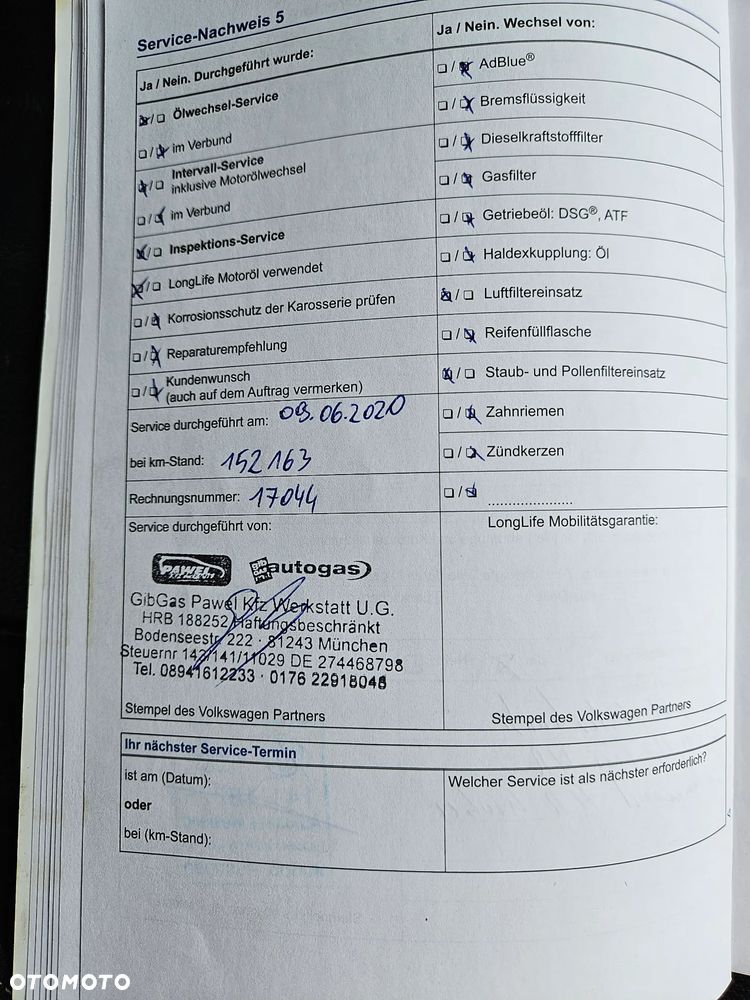 Service-Nachweis 5
Ja / Nein. Durchgeführt wurde:
☒/☐ Ölwechsel-Service
☐/☒ im Verbund
☒/☐ Intervall-Service
inklusive Motorölwechsel
☐/☒ im Verbund
☒/☐ Inspektions-Service
☒/☐ LongLife Motoröl verwendet
☐/☒ Korrosionsschutz der Karosserie prüfen
☐/☒ Reparaturempfehlung
☐/☒ Kundenwunsch
(auch auf dem Auftrag vermerken)
Service durchgeführt am: 09.06.2020
bei km-Stand: 152 163
Rechnungsnummer: 17044
Service durchgeführt von:
PAWEL
autogas
GibGas Pawel Kfz Werkstatt U.G.
HRB 188252/Haftungsbeschränkt
Bodenseestr. 222 · 81243 München
Steuernr 142/141/11029 DE 274468798
Tel. 08941612233 · 0176 22918048
Stempel des Volkswagen Partners
Ja / Nein. Wechsel von:
☐/☒ AdBlue®
☐/☒ Bremsflüssigkeit
☐/☒ Dieselkraftstofffilter
☐/☒ Gasfilter
☐/☒ Getriebeöl: DSG®, ATF
☐/☒ Haldexkupplung: Öl
☒/☐ Luftfiltereinsatz
☐/☒ Reifenfüllflasche
☒/☐ Staub- und Pollenfiltereinsatz
☐/☒ Zahnriemen
☐/☒ Zündkerzen
☐/☒ .....................
LongLife Mobilitätsgarantie:
Stempel des Volkswagen Partners
Ihr nächster Service-Termin
ist am (Datum):
oder
bei (km-Stand):
Welcher Service ist als nächster erforderlich?
OTOMOTO